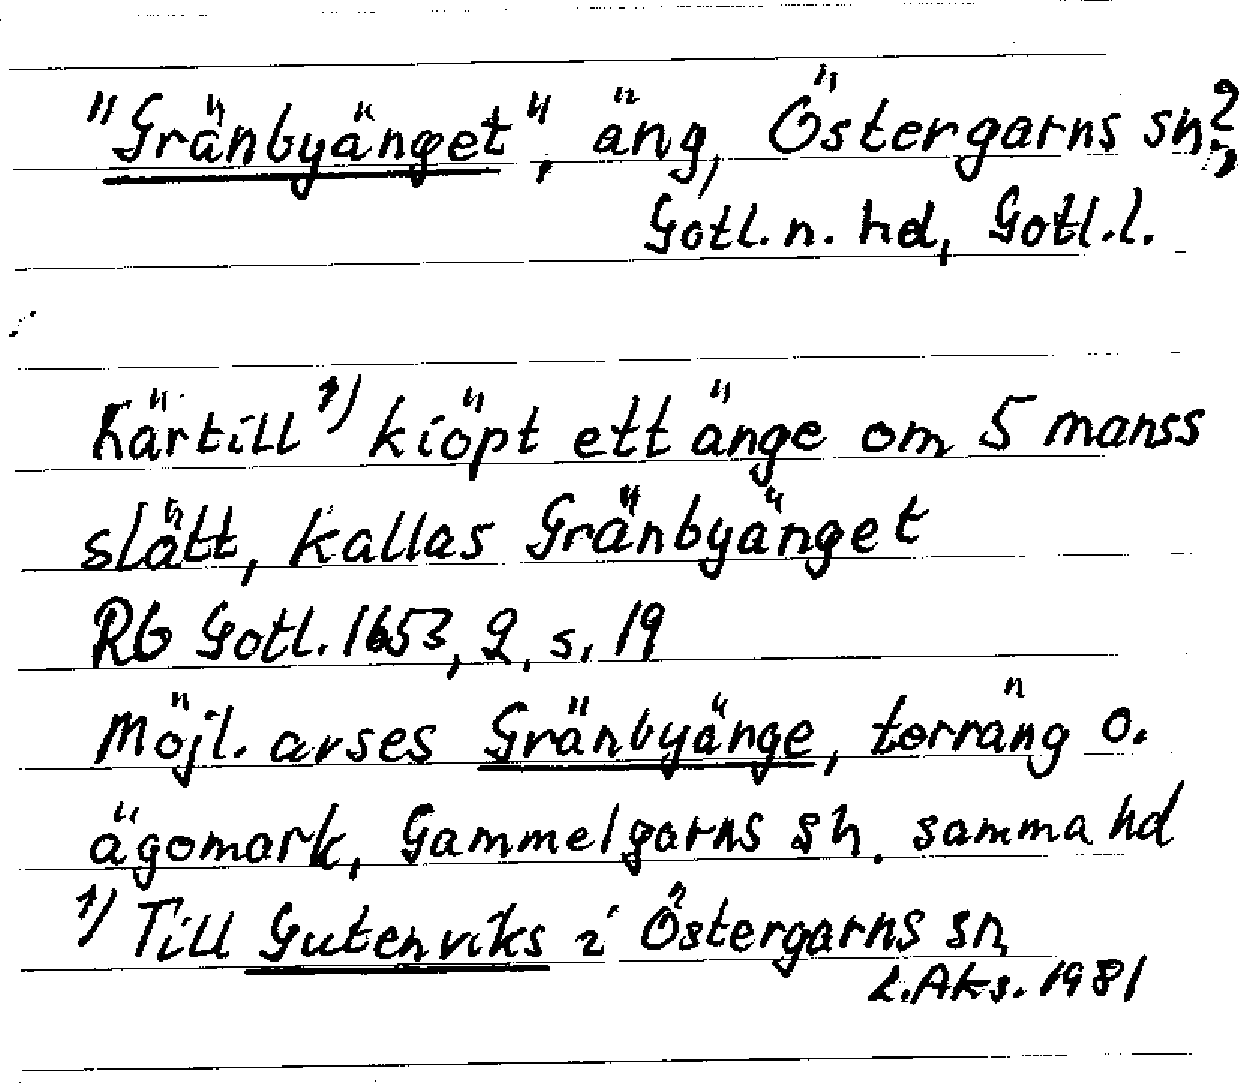 "Gränbyänget", äng, Östergarns sn?,
Gotl. n. hd, Gotl.l.
härtill 1) kiöpt ett änge om 5 manss
slätt, kallas Gränbyänget
RG Gotl. 1653, 2, s. 19
Möjl. avses Gränbyänge, terräng o.
ägomark, Gammelgarns sn. samma hd
1) Till Gutenviks i Östergarns sn
L.Aks. 1981